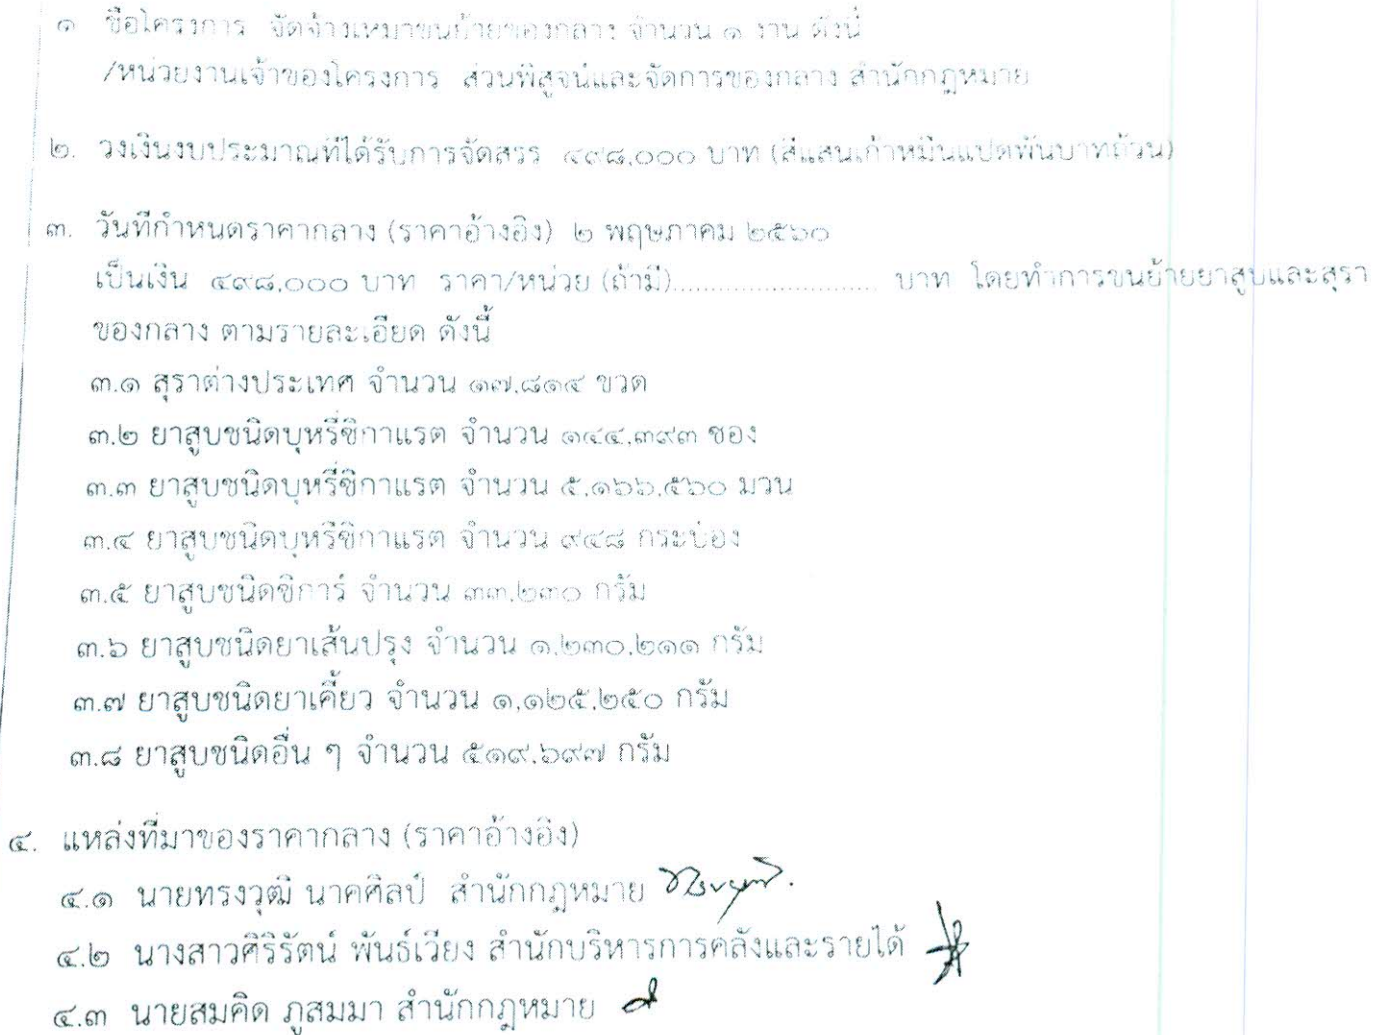 ๑ ชื่อโครงการ จัดจ้างเหมาขนย้ายของกลาง จำนวน ๑ งาน ดังนี้
/หน่วยงานเจ้าของโครงการ ส่วนพิสูจน์และจัดการของกลาง สำนักกฎหมาย
๒. วงเงินงบประมาณที่ได้รับการจัดสรร ๔๙๘,๐๐๐ บาท (สี่แสนเก้าหมื่นแปดพันบาทถ้วน)
๓. วันที่กำหนดราคากลาง (ราคาอ้างอิง) ๒ พฤษภาคม ๒๕๖๐
เป็นเงิน ๔๙๘,๐๐๐ บาท ราคา/หน่วย (ถ้ามี)........................... บาท โดยทำการขนย้ายยาสูบและสุรา
ของกลาง ตามรายละเอียด ดังนี้
๓.๑ สุราต่างประเทศ จำนวน ๑๗,๘๑๔ ขวด
๓.๒ ยาสูบชนิดบุหรี่ซิกาแรต จำนวน ๑๔๔,๓๙๓ ซอง
๓.๓ ยาสูบชนิดบุหรี่ซิกาแรต จำนวน ๕,๑๖๖,๕๖๐ มวน
๓.๔ ยาสูบชนิดบุหรี่ซิกาแรต จำนวน ๙๔๘ กระป๋อง
๓.๕ ยาสูบชนิดซิการ์ จำนวน ๓๓,๒๓๐ กรัม
๓.๖ ยาสูบชนิดยาเส้นปรุง จำนวน ๑,๒๓๐,๒๑๑ กรัม
๓.๗ ยาสูบชนิดยาเคี้ยว จำนวน ๑,๑๒๕,๒๕๐ กรัม
๓.๘ ยาสูบชนิดอื่น ๆ จำนวน ๕๑๙,๖๙๗ กรัม
๔. แหล่งที่มาของราคากลาง (ราคาอ้างอิง)
๔.๑ นายทรงวุฒิ นาคศิลป์ สำนักกฎหมาย
๔.๒ นางสาวศิริรัตน์ พันธ์เวียง สำนักบริหารการคลังและรายได้
๔.๓ นายสมคิด ภูสมมา สำนักกฎหมาย